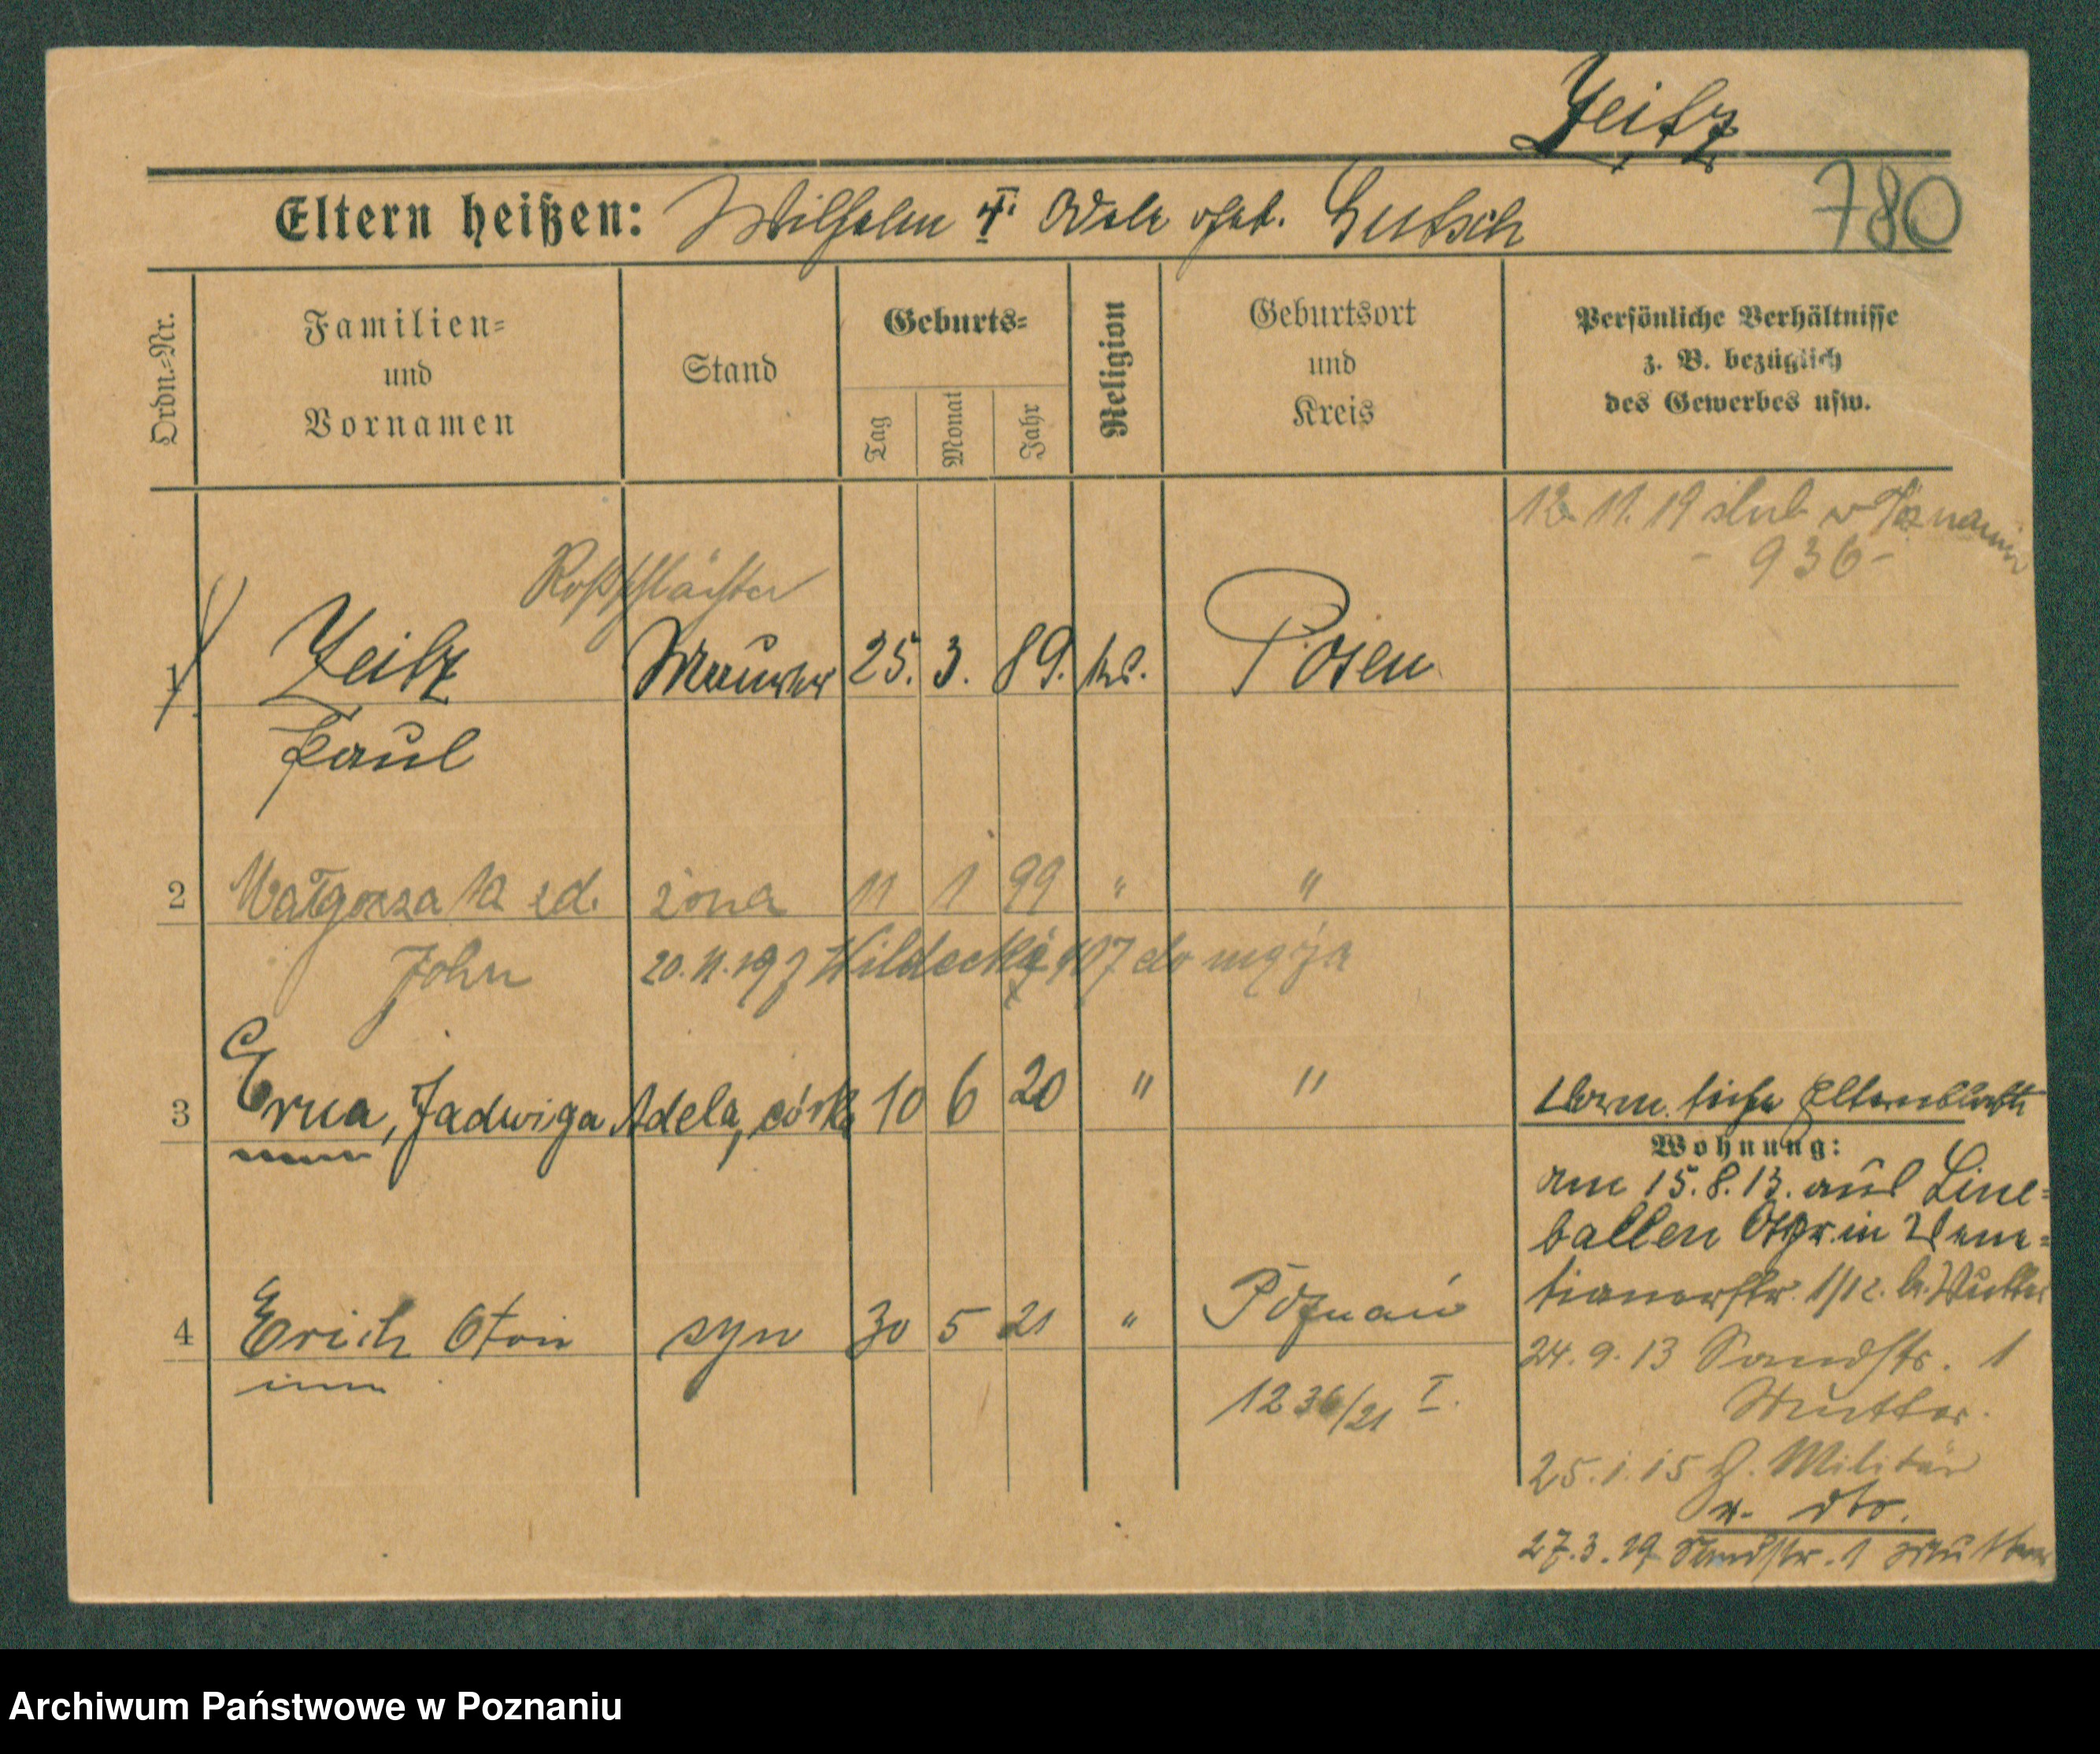 Zeitz
780
Eltern heißen: Wilhelm † Adele geb. Gutsch
Ordn.=Nr.
Familien=
und
Vornamen
Stand
Geburts=
Tag
Monat
Jahr
Religion
Geburtsort
und
Kreis
Persönliche Verhältnisse
z. B. bezüglich
des Gewerbes usw.
12. 11. 19 slub w Poznaniu
- 936 -
Roßschlächter
1 Zeitz Maurer 25. 3. 89. Posen
Paul
2 Małgorzata zd. żona 11 1 99 " "
John 20. 11. 19 z Wildecką 107 do męża
3 Erna, Jadwiga Adela, córka 10 6 20 " "
Vorm. siehe Elternblatt
Wohnung:
am 15. 8. 13. aus
ballen Ostpr. in Vene=
tianerstr. 1/12. b. Mutter
4 Erich Oton syn 30 5 21 " Poznań
1236/21 I.
24. 9. 13 Sandstr. 1
Mutter.
25. 1. 15 z. Militär
v. dto.
27. 3. 19 Sandstr. 1 Mutter
Archiwum Państwowe w Poznaniu